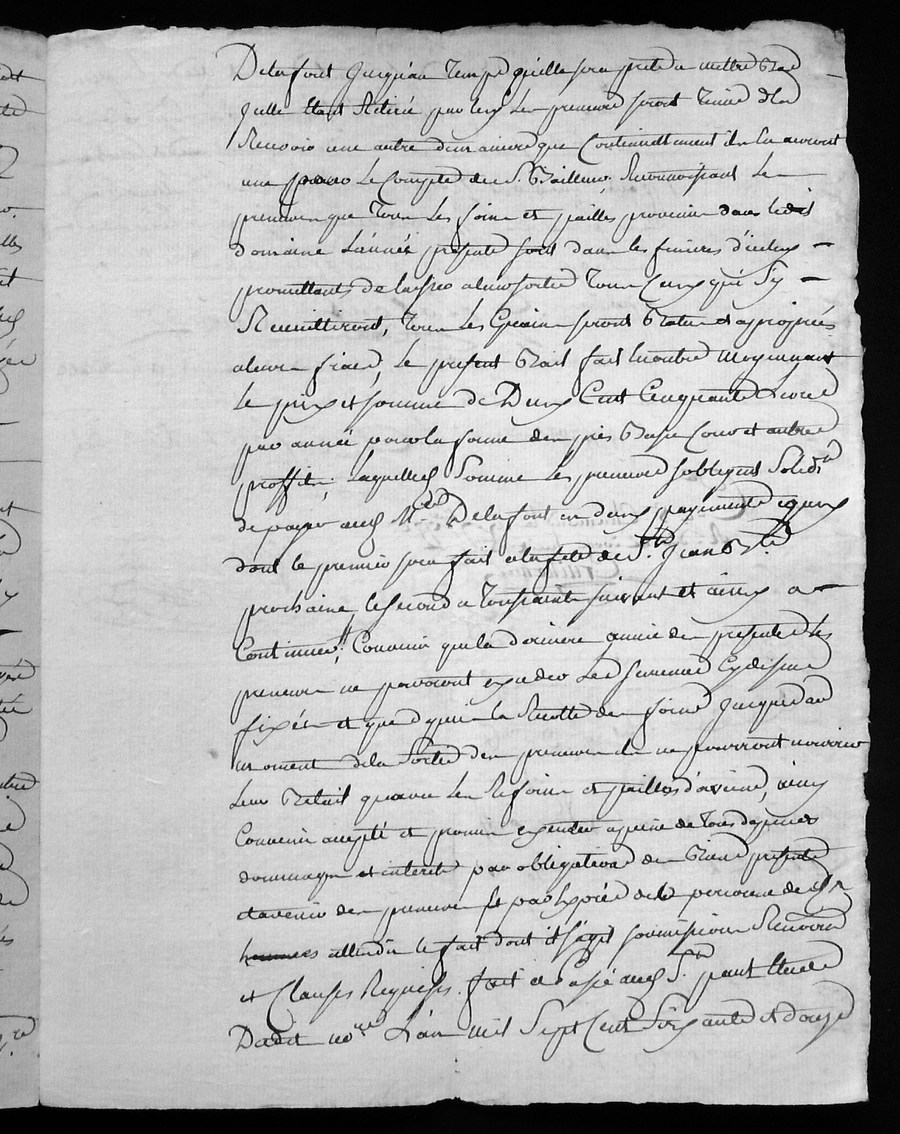 Delafont jusqu'au temps qu'elle sera prete a mettre bas
quelle etant retirée par les preneurs seront tenus d'en
Recevoir une autre de maniere que continuellement ils en auront
une pour le compte du S. Bailleur. Reconnoissant les
preneurs que tous les foins et pailles provenus dans ledit
domaine l'année presente sont dans les fenieres d'iceluy
promettants de laisser a leur sortie tous ceux qui s'y
Recuilliront, tous les grains seront batus et apropriés
a leurs fraix, le present Bail fait en outre moyennant
Le prix et somme de Deux Cent Cinquante Livres
par année pour la ferme des prés Basse cour et autres
proffits, laquelle somme les preneurs s'obligent solid.t
de payer aud. Delafont en deux payments egaux
dont le premier sera fait a la fete de St Jean B.te
prochaine le second a Toussaint suivant et ainsy a
Continuer; Convenu que la derniere année des presentes les
preneurs ne pourront exceder les semences cy dessus
fixées et que depuis la Recolte des foins jusques au
moment de la sortie des preneurs ils ne pourront nourrir
Leur Betail qu'avec les Refoins et pailles d'avoine, ainsy
Convenu accepté et promis executer a peine de tous depens
dommages et interets par obligation de Biens presents
et avenir des preneurs et par exprés de la personne des
hommes attendu le fait dont il s'agit soumissions Renon
et Clauses Requises. fait et Passé aud. St. paul Etude
Dudit no.re L'an mil Sept Cent Soixante et douze